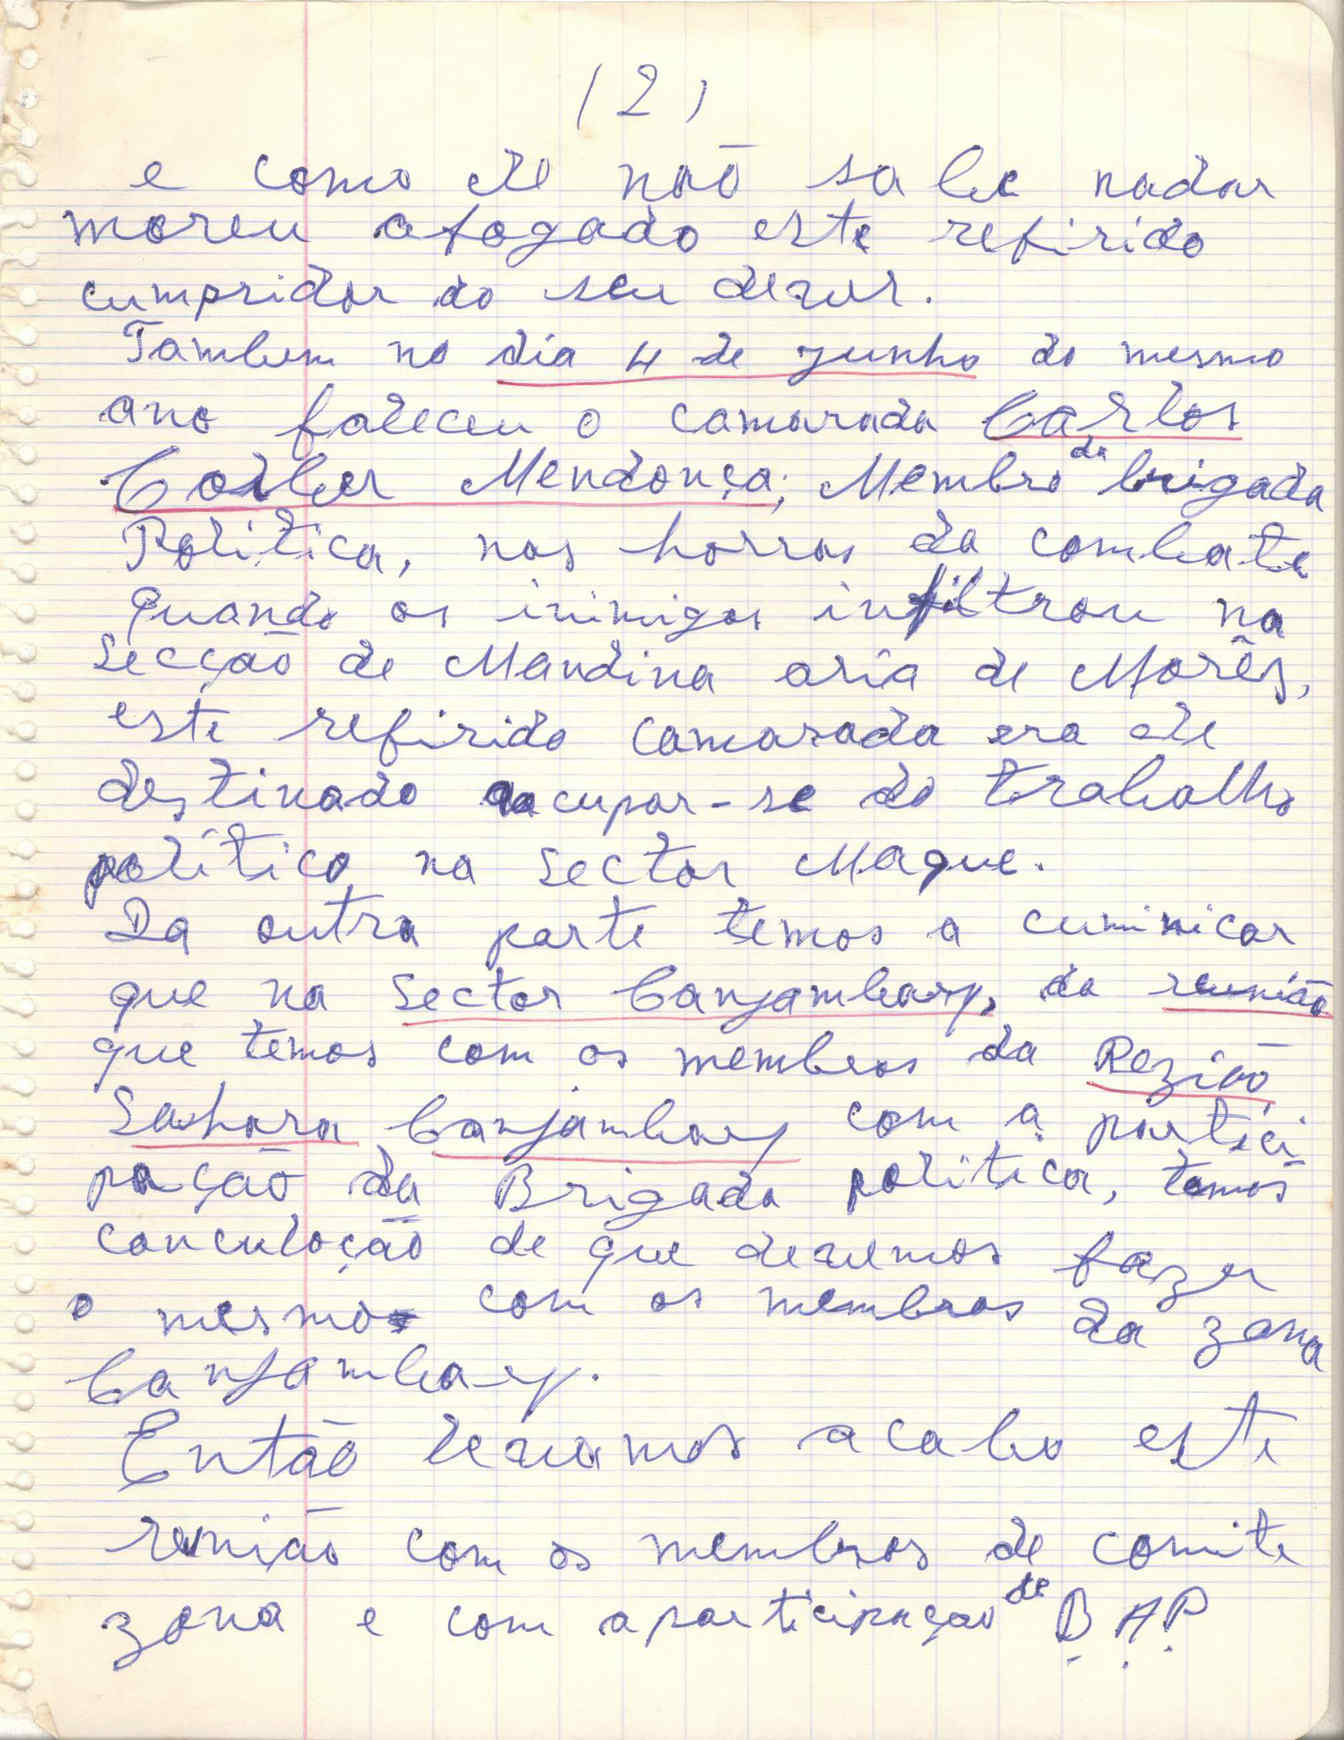 (2)
e como ele não sabe nadar
moreu afogado este refirido
cumpridor do seu dever.
Tambem no dia 4 de junho do mesmo
ano faleceu o camarada Carlos
Mendonça; Membro da brigada
Politica, nas horras da combate
quando os inimigos infiltrou na
Secção de Mandina aria de Morês,
este refirido camarada era ele
destinado cupar-se do trabalho
político na Sector Maque.
Da outra parte temos a cuminicar
que na Sector Canjambary, da reunião
que temos com os membros da Rezião
Sashara Canjambary com a partici
pação da Brigada politica, temos
conculoção de que devemos fazer
o mesmo com os membros da zona
Canjambary.
Então levamos acabo este
renião com os membros de comite
zona e com aparticipação de B.A.P